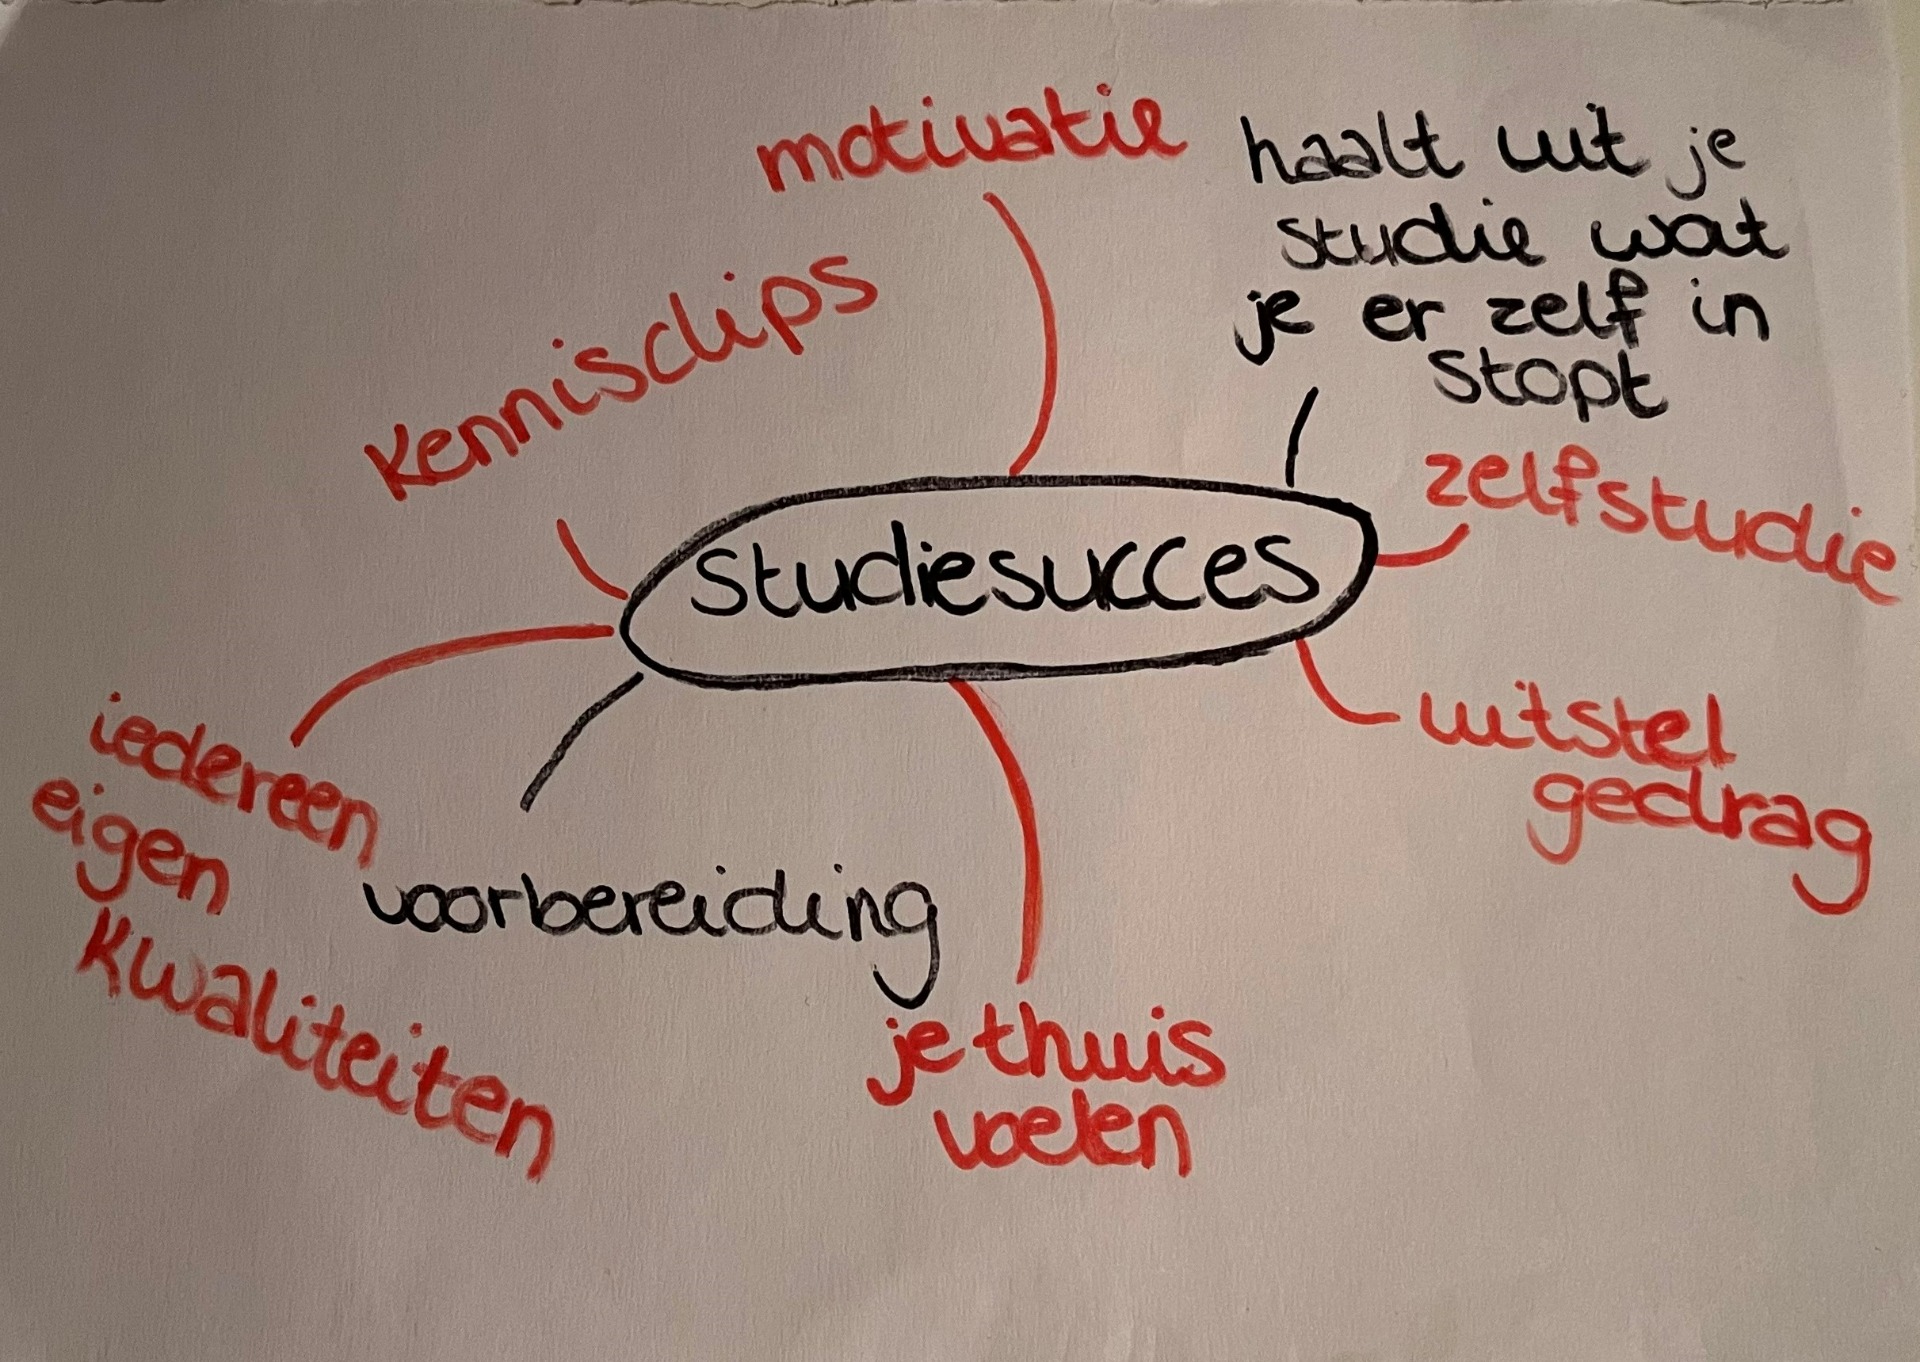 motivatie
haalt uit je
studie wat
je er zelf in
stopt
Kennisclips
zelfstudie
studiesucces
uitstel
gedrag
iedereen
eigen
kwaliteiten
voorbereiding
je thuis
voelen